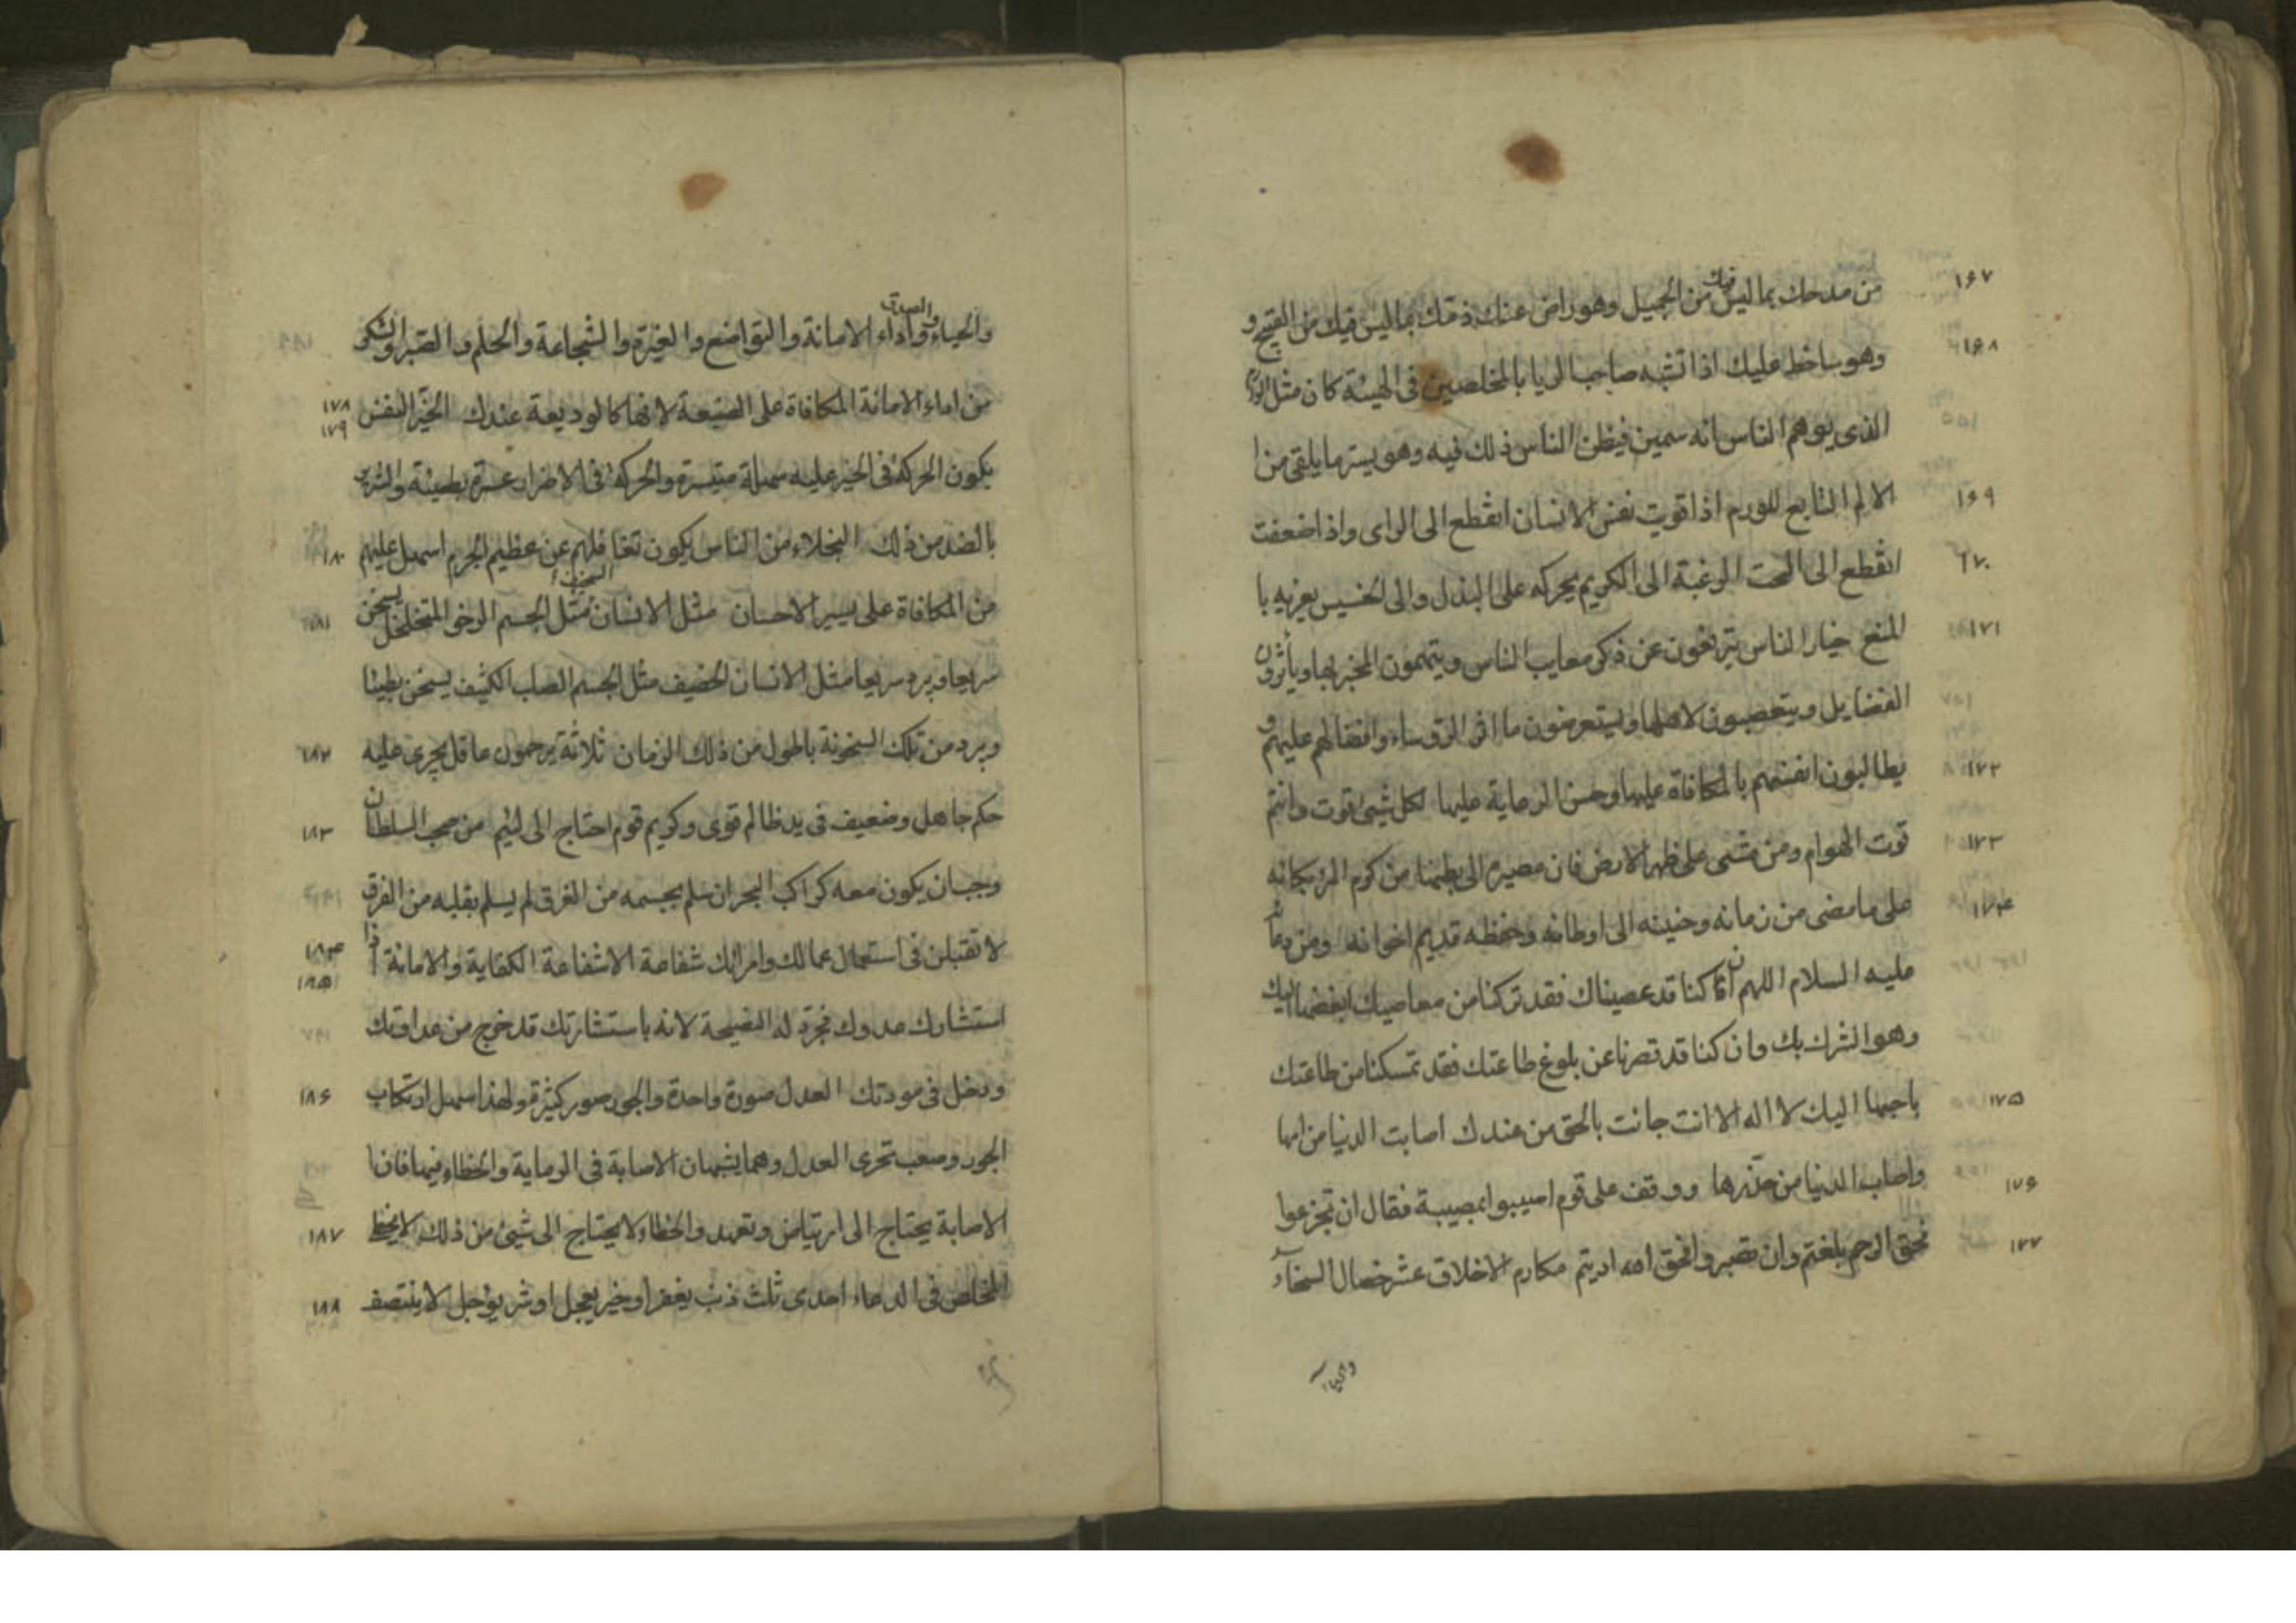 ١٦٧ من مدحك بما ليس فيك من الجميل وهو راض عنك ذمك بما ليس فيك من القبيح و
١٦٨ وهو ساخط عليك اذا تشبه صاحب الريا بالمخلصين فى الهيئة كان مثل الورم
الذى يوهم الناس انه سمين فيظن الناس ذلك فيه وهو يستر ما يلقى من ا
١٦٩ الالم التابع للورم اذا قويت نفس الانسان انقطع الى الراى واذا ضعفت
١٧٠ انقطع الى البحت الرغبة الى الكريم يحركه على البذل والى الخسيس يغريه با
١٧١ المنع خيار الناس يترفعون عن ذكر معايب الناس ويتهمون المخبر بها ويأثرون
الفضايل ويتعصبون لاهلها ويستعرضون ماثر الرؤساء وافضالهم عليهم و
١٧٢ يطالبون انفسهم بالمكافاة عليها وحسن الرعاية عليها لكل شيئ قوت وانتم
١٧٣ قوت الهوام ومن مشى على ظهر الارض فان مصيره الى بطنها من كرم المرء بكائه
١٧٤ على ما مضى من زمانه وحنينه الى اوطانه وحفظه قديم اخوانه ومن دعائه
عليه السلام اللهم ان كنا قد عصيناك فقد تركنا من معاصيك ابغضها اليك
وهو الشرك بك وان كنا قد قصرنا عن بلوغ طاعتك فقد تمسكنا من طاعتك
١٧٥ باحبها اليك لا اله الا انت جائت بالحق من عندك اصابت الدنيا من امنها
١٧٦ واصاب الدنيا من حذرها ووقف على قوم اصيبوا بمصيبة فقال ان تجزعوا
١٧٧ فحق الرحم بلغتم وان تصبروا فحق الله اديتم مكارم الاخلاق عشر خصال السخاء
والحياء
والحياء والصدق واداء الامانة والتواضع والغيرة والشجاعة والحلم والصبر والشكر
١٧٨ ١٧٩ من اداء الامانة المكافاة على الصنيعة لانها كالوديعة عندك الخير النفس
يكون الحركة فى الخير عليه سهلة متيسرة والحركة فى الاضرار عسرة بطيئة والشرير
١٨٠ بالضد من ذلك البخلاء من الناس يكون تغافلهم عن عظيم الجرم اسهل عليهم
١٨١ من المكافاة على يسير الاحسان مثل الانسان السخيف مثل الجسم الرخو المتخلخل يسخن
سريعا ويبرد سريعا مثل الانسان الحصيف مثل الجسم الصلب الكثيف يسخن بطيئا
١٨٢ ويبرد من تلك السخونة باطول من ذلك الزمان ثلاثة يرحمون عاقل يجرى عليه
١٨٣ حكم جاهل وضعيف فى يد ظالم قوى وكريم قوم احتاج الى لئيم من صحب السلطان
وجب ان يكون معه كراكب البحر ان سلم بجسمه من الغرق لم يسلم بقلبه من الفرق
١٨٤ ١٨٥ لا تقبلن فى استعمال عمالك وامرائك شفاعة الا شفاعة الكفاية والامانة اذا
استشارك عدوك فجرد له النصيحة لانه باستشارتك قد خرج من عداوتك
١٨٦ ودخل فى مودتك العدل صورة واحدة والجور صور كثيرة ولهذا سهل ارتكاب
الجور وصعب تحرى العدل وهما يشبهان الاصابة فى الرماية والخطاء فيها فان ا
١٨٧ الاصابة يحتاج الى ارتياض وتعهد والخطاء لا يحتاج الى شيئ من ذلك لا يخطئ
١٨٨ المخلص فى الدعاء احدى ثلث ذنب يغفر او خير يعجل او شر يؤجل لا ينتصف